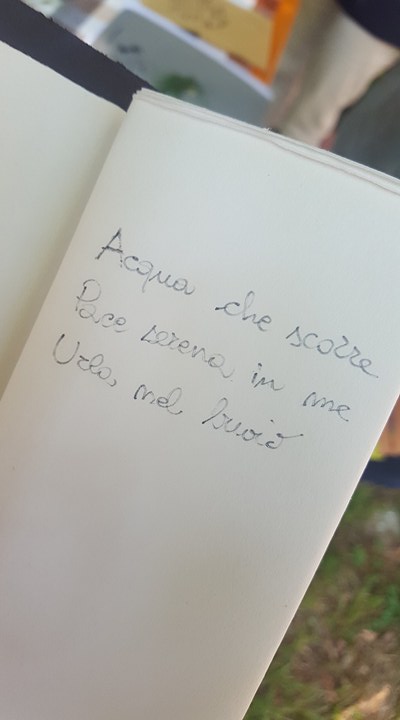 Acqua che scorre
Pace serena in me
Urlo, nel buio